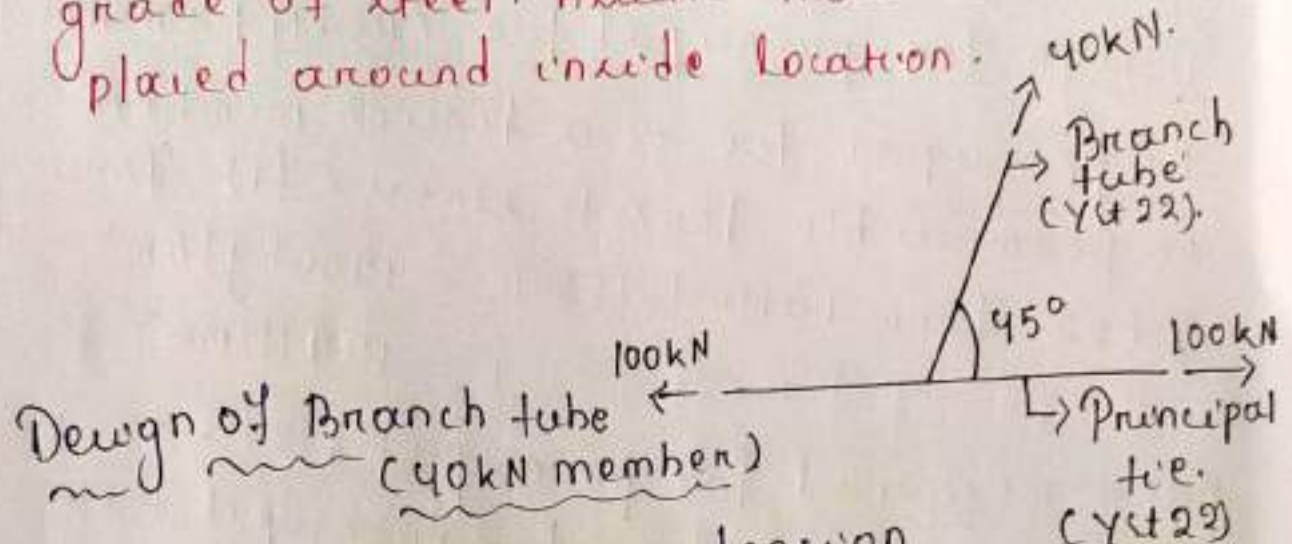 grade of steel.
placed around inside location.
40kN.
Branch
tube
(Yst 22).
45°
100kN
100kN
Principal
tie.
(Yst 22)
Design of Branch tube
(40kN member)
tension